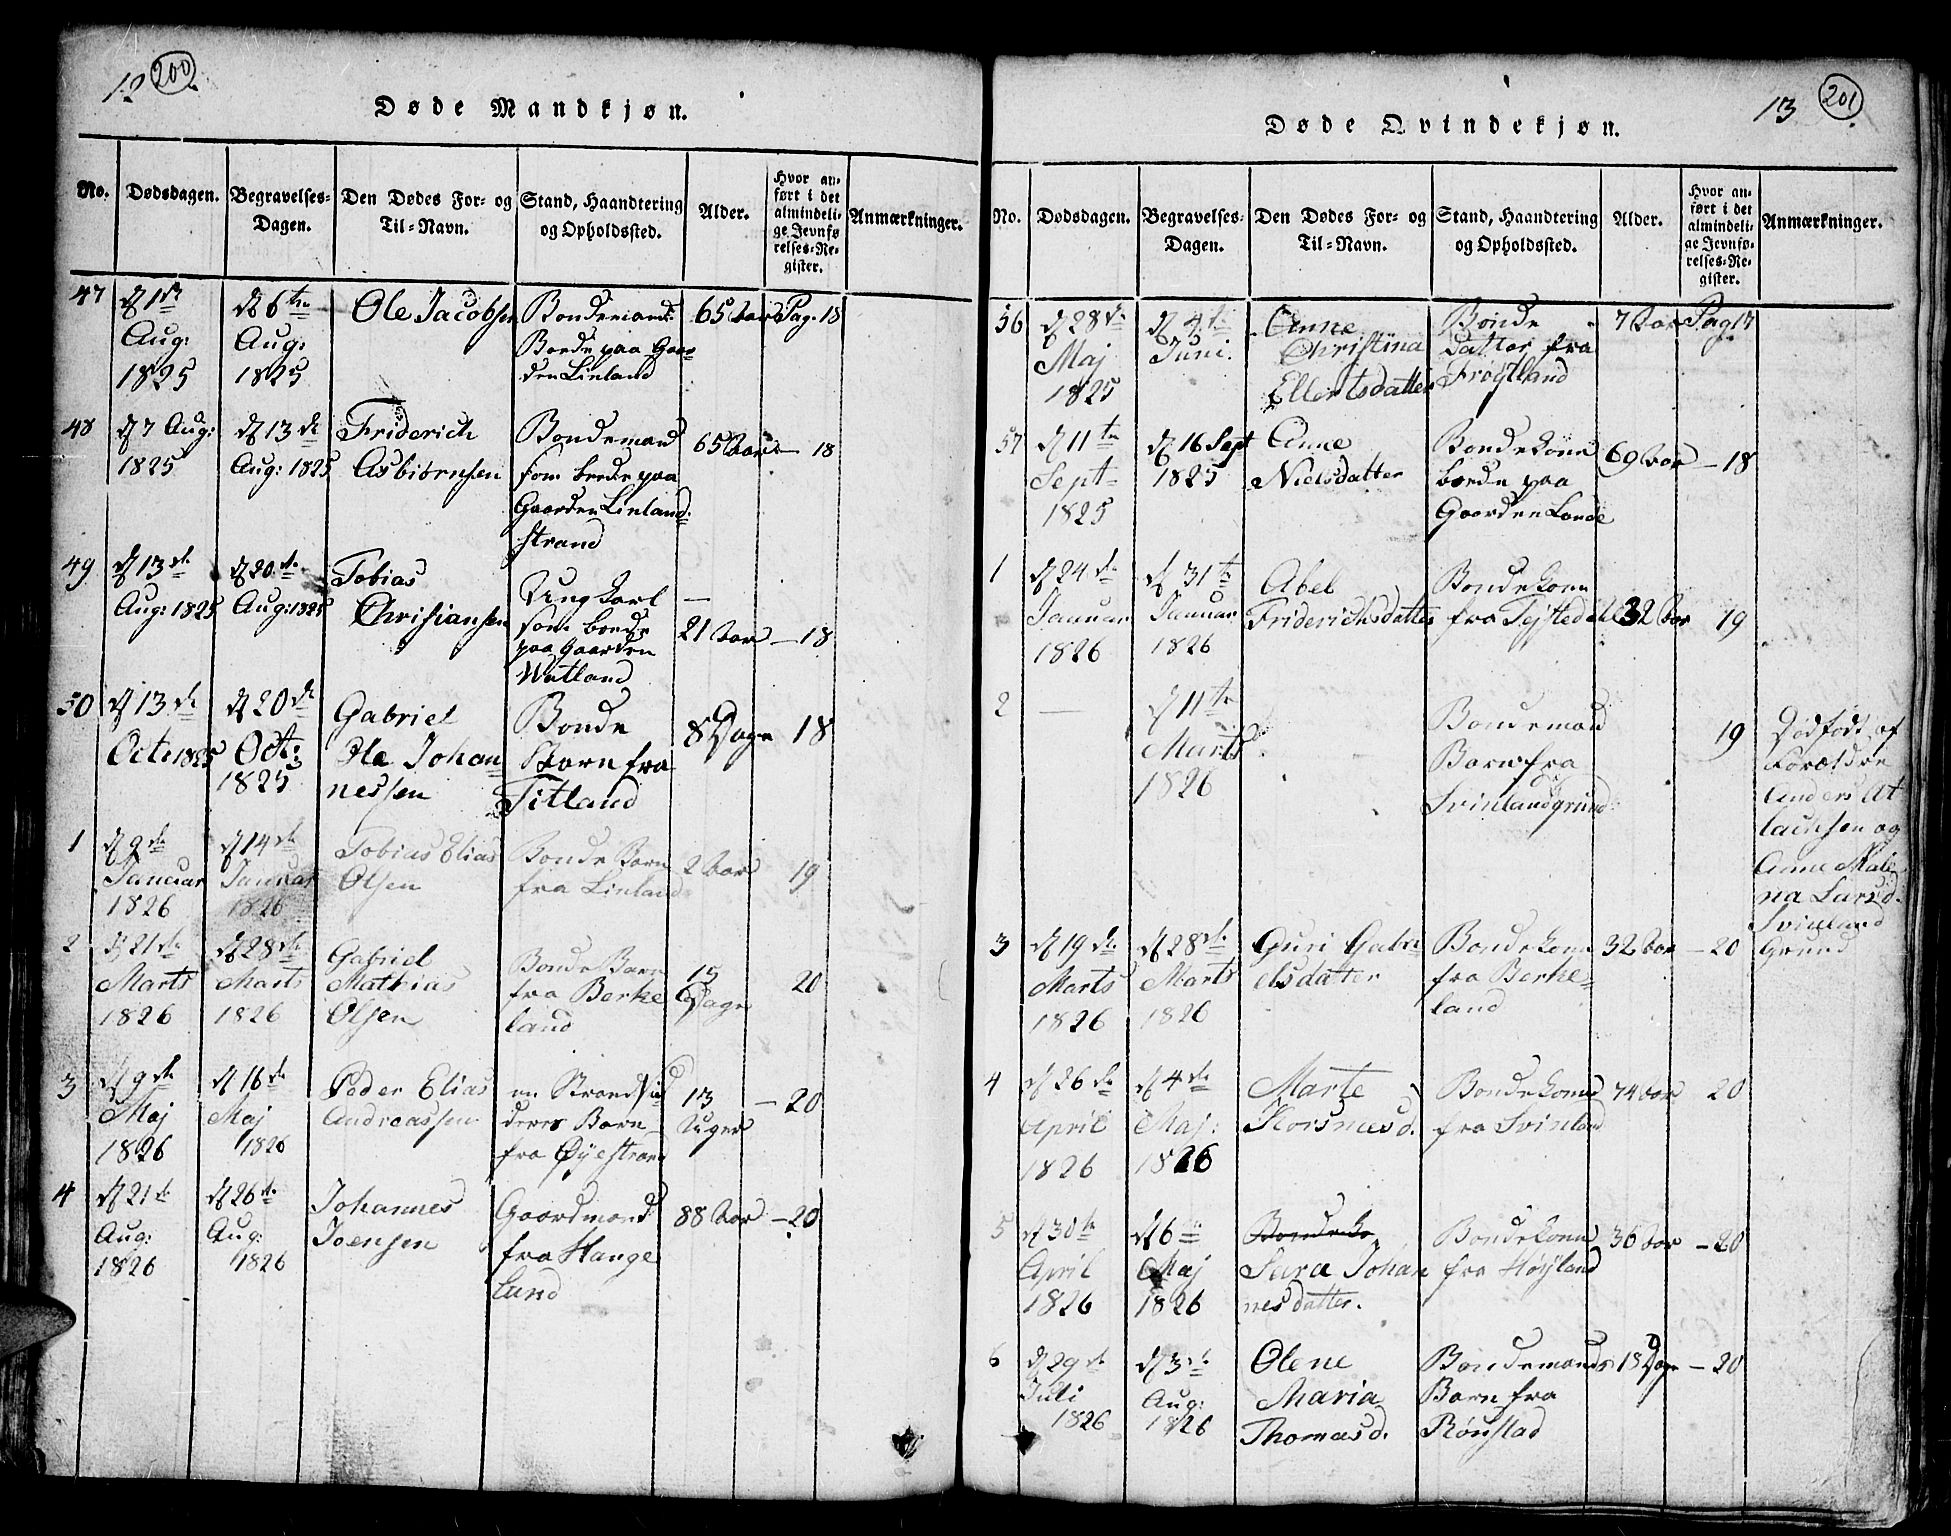 12 200.
Døde Mandkjøn.
No. Dødsdagen. Begravelses-Dagen. Den Dødes For- og Til-Navn. Stand, Haandtering og Opholdssted. Alder. Hvor anført i det almindelige Jevnførelses-Register. Anmærkninger.
47 d 1ste Aug: 1825 d 6te Aug: 1825 Ole Jacobsen Bondemand Boede paa Gaarden Linland 65 Aar Pag. 18
48 d 7 Aug: 1825 d 13de Aug: 1825 Friderich Asbiørnsen Bondemand som boede paa Gaarden Linlandstrand 65 Aar — 18
49 d 13de Aug: 1825 d 20de Aug: 1825 Tobias Chrisiansen Ungkarl som boede paa Gaarden Watland 21 Aar — 18
50 d 13de Octr 1825 d 20de Oct: 1825 Gabriel Ole Johannessen Bonde Barn fra Titland 8 Dage 18
1 d 9de Januar 1826 d 14de Januar 1826 Tobias Elias Olsen Bonde Barn fra Linland 2 Aar 19
2 d 21de Marts 1826 d 28de Marts 1826 Gabriel Mathias Olsen Bonde Barn fra Berkeland 15 Dage 20
3 d 9de Maj 1826 d 16de Maj 1826 Peder Elias Andreassen en Strandsidders Barn fra Øyestrand 13 Uger — 20
4 d 21de Aug: 1826 d 26de Aug: 1826 Johannes Joensen Gaardmand fra Haugeland 88 Aar — 20
13 201.
Døde Qvindekjøn.
No. Dødsdagen. Begravelses-Dagen. Den Dødes For- og Til-Navn. Stand, Haandtering og Opholdssted. Alder. Hvor anført i det almindelige Jevnførelses-Register. Anmærkninger.
56 d 28de Maj 1825 d 4de Juni. Anne Christina Ellertsdatter Bonde Datter fra Frøytland 7 Aar Pag 17
57 d 11te Sept 1825 d 16 Sept 1825 Anne Nielsdatter Bondekone boede paa Gaarden Lande 69 Aar — 18
1 d 24de Januar 1826 d 31te Januar 1826 Abel Friderichsdatter Bondekone fra Tejstedahl 32 Aar 19
2 — d 11te Marts 1826 Bondemand Barn fra Svinlandgrund 19 Dødfødt af Forældre Anders Atlacksen og Anne Malena Larsd. Svinland Grund
3 d 19de Marts 1826 d 28de Marts 1826 Guri Gabrielsdatter Bondekone fra Berkeland 32 Aar — 20
4 d 26de April 1826 d 4de Maj: 1826 Marte d. Bondekone fra Svinland 74 Aar 20
5 d 30te April 1826 d 6te Maj 1826 Bondeko Sara Johannesdatter. Bondekone fra Høyland 36 Aar — 20
6 d 29de Juli 1826 d 3de Aug: 1826 Olene Maria Thomasd. Bondemands Barn fra Rønstad 18 Dage — 20